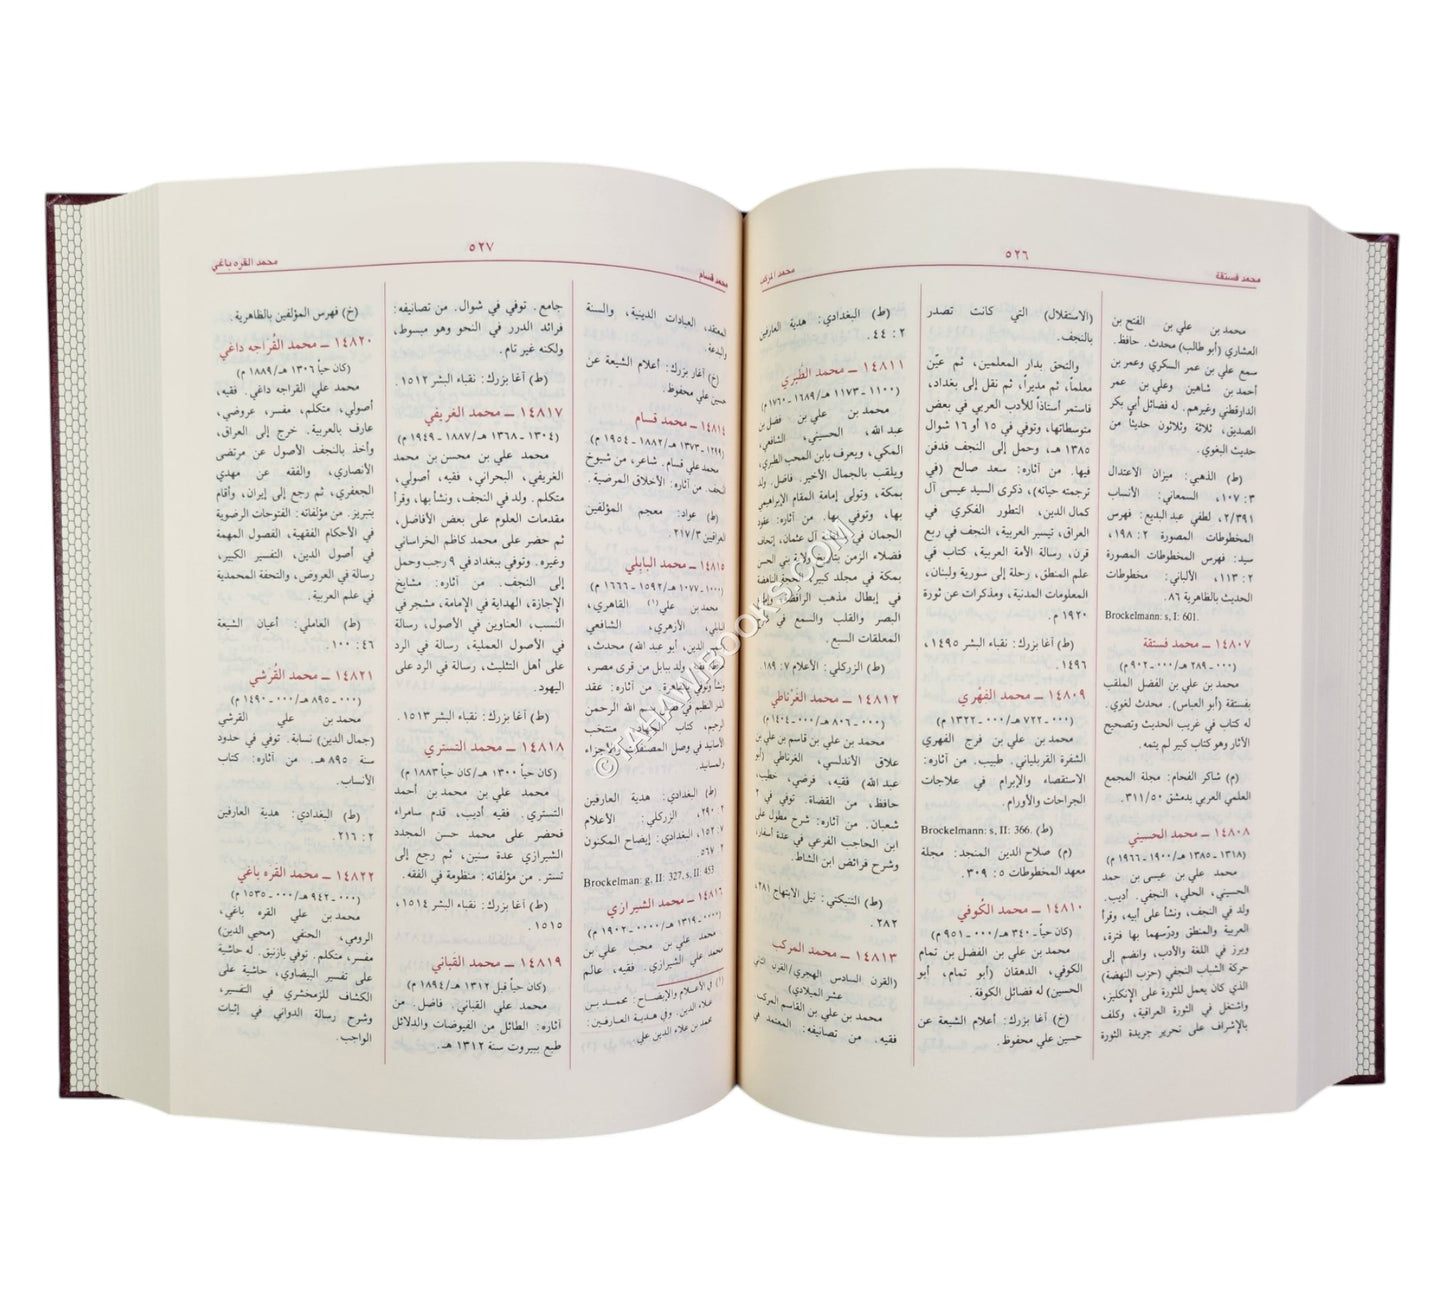 ٥٢٦
محمد فستقة
محمد المركب
محمد بن علي بن الفتح بن
العشاري (أبو طالب) محدث. حافظ.
سمع علي بن عمر السكري وعمر بن
أحمد بن شاهين وعلي بن عمر
الدارقطني وغيرهم. له فضائل أبي بكر
الصديق، ثلاثة وثلاثون حديثاً من
حديث البغوي.
(ط) الذهبي: ميزان الاعتدال
٣ : ١٠٧، السمعاني: الأنساب
٢/٣٩١، لطفي عبد البديع: فهرس
المخطوطات المصورة ٢ : ١٩٨،
سيد: فهرس المخطوطات المصورة
٢ : ١١٣، الألباني: مخطوطات
الحديث بالظاهرية ٨٦.
Brockelmann: s, I: 601.
١٤٨٠٧ ــ محمد فستقة
(٠٠٠ ـ ٢٨٩ هـ/٠٠٠ ـ ٩٠٢ م)
محمد بن علي بن الفضل الملقب
بفستقة (أبو العباس). محدث لغوي.
له كتاب في غريب الحديث وتصحيح
الآثار وهو كتاب كبير لم يتمه.
(م) شاكر الفحام: مجلة المجمع
العلمي العربي بدمشق ٣١١/٥٠.
١٤٨٠٨ ــ محمد الحسيني
(١٣١٨ ـ ١٣٨٥ هـ/١٩٠٠ ـ ١٩٦٦ م)
محمد علي بن عيسى بن حمد
الحسيني، الحلي، النجفي. أديب.
ولد في النجف، ونشأ على أبيه، وقرأ
العربية والمنطق ودرّسهما بها فترة،
وبرز في اللغة والأدب، وانضم إلى
حركة الشباب النجفي (حزب النهضة)
الذي كان يعمل للثورة على الإنكليز،
واشتغل في الثورة العراقية، وكلف
بالإشراف على تحرير جريدة الثورة
(الاستقلال) التي كانت تصدر
بالنجف.
والتحق بدار المعلمين، ثم عيّن
معلماً، ثم مديراً، ثم نقل إلى بغداد،
فاستمر أستاذاً للأدب العربي في بعض
متوسطاتها، وتوفي في ١٥ أو ١٦ شوال
١٣٨٥ هـ، وحمل إلى النجف فدفن
فيها. من آثاره: سعد صالح (في
ترجمته حياته)، ذكرى السيد عيسى آل
كمال الدين، التطور الفكري في
العراق، تيسير العربية، النجف في ربع
قرن، رسالة الأمة العربية، كتاب في
علم المنطق، رحلة إلى سورية ولبنان،
المعلومات المدنية، ومذكرات عن ثورة
١٩٢٠ م.
(ط) آغا بزرك: نقباء البشر ١٤٩٥،
١٤٩٦.
١٤٨٠٩ ــ محمد الفهْري
(٠٠٠ ـ ٧٢٢ هـ/٠٠٠ ـ ١٣٢٢ م)
محمد بن علي بن فرج الفهري
الشفرة القربلياني. طبيب. من آثاره:
الاستقصاء والإبرام في علاجات
الجراحات والأورام.
(ط) Brockelmann: s, II: 366.
(م) صلاح الدين المنجد: مجلة
معهد المخطوطات ٥ : ٣٠٩.
١٤٨١٠ ــ محمد الكُوفي
(كان حياً ـ ٣٤٠ هـ/٠٠٠ ـ ٩٥١ م)
محمد بن علي بن الفضل بن تمام
الكوفي، الدهقان (أبو تمام، أبو
الحسين) له فضائل الكوفة.
(خ) آغا بزرك: أعلام الشيعة عن
حسين علي محفوظ.
(ط) البغدادي: هدية العارفين
٢ : ٤٤.
١٤٨١١ ــ محمد الطَّبري
(١١٠٠ ـ ١١٧٣ هـ/١٦٨٩ ـ ١٧٦٠ م)
محمد بن علي بن فضل بن
عبد الله، الحسيني، الشافعي،
المكي، ويعرف بابن المحب الطبري،
ويلقب بالجمال الأخير. فاضل. ولد
بمكة، وتولى إمامة المقام الإبراهيمي
بها، وتوفي بها. من آثاره: عقود
الجمان في آل عثمان، إتحاف
فضلاء الزمن بتاريخ ولاية بني الحسن
بمكة في مجلد كبير،
في إبطال مذهب الرافضة،
البصر والقلب والسمع في
المعلقات السبع.
(ط) الزركلي: الأعلام ٧ : ١٨٩.
١٤٨١٢ ــ محمد الغرْناطي
(٠٠٠ ـ ٨٠٦ هـ/٠٠٠ ـ ١٤٠٤ م)
محمد بن علي بن قاسم بن علي بن
علاق الأندلسي، الغرناطي (أبو
عبد الله) فقيه، فرضي، خطيب،
حافظ، من القضاة. توفي في ٢
شعبان. من آثاره: شرح مطول على
ابن الحاجب الفرعي في عدة أسفار،
وشرح فرائض ابن الشاط.
(ط) التنبكتي: نيل الابتهاج ٢٨١،
٢٨٢.
١٤٨١٣ ــ محمد المركب
(القرن السادس الهجري/القرن الثاني
عشر الميلادي)
محمد بن علي بن القاسم المركب.
فقيه. من تصانيفه: المعتمد في
٥٢٧
محمد قسام
محمد القره باغي
المعتقد، العبادات الدينية، والسنة
والبدعة.
(خ) آغار بزرك: أعلام الشيعة عن
حسين علي محفوظ.
١٤٨١٤ ــ محمد قسام
(١٢٩٩ ـ ١٣٧٣ هـ/١٨٨٢ ـ ١٩٥٤ م)
محمد علي قسام. شاعر، من شيوخ
النجف. من آثاره: الأخلاق المرضية.
(ط) عواد: معجم المؤلفين
العراقيين ٢١٧/٣.
١٤٨١٥ ــ محمد البابِلي
(١٠٠٠ ـ ١٠٧٧ هـ/١٥٩٢ ـ ١٦٦٦ م)
محمد بن علي(١) القاهري،
البابلي، الأزهري، الشافعي
الدين، أبو عبد الله) محدث،
ولد ببابل من قرى مصر،
ونشأ وتوفي بالقاهرة. من آثاره: عقد
الدر النظيم في فضل بسم الله الرحمن
الرحيم، كتاب الجهاد، منتخب
الأسانيد في وصل المصنفات والأجزاء
والمسانيد.
(ط) البغدادي: هدية العارفين
٢ : ٢٩٠، الزركلي: الأعلام
٧ : ١٥٢، البغدادي: إيضاح المكنون
٢ : ٥٦٧.
Brockelman: g, II: 327, s, II: 453
١٤٨١٦ ــ محمد الشيرازي
(٠٠٠ ـ ١٣١٩ هـ/٠٠٠ ـ ١٩٠٢ م)
محمد علي بن محب علي بن
محمد علي الشيرازي. فقيه، عالم
(١) في الأعلام والإيضاح: محمد بن
علاء الدين. وفي هدية العارفين:
محمد بن علاء الدين علي
جامع. توفي في شوال. من تصانيفه:
فرائد الدرر في النحو وهو مبسوط،
ولكنه غير تام.
(ط) آغا بزرك: نقباء البشر ١٥١٢.
١٤٨١٧ ــ محمد الغريفي
(١٣٠٤ ـ ١٣٦٨ هـ/١٨٨٧ ـ ١٩٤٩ م)
محمد علي بن محسن بن محمد
الغريفي، البحراني، فقيه، أصولي،
متكلم. ولد في النجف، ونشأ بها، وقرأ
مقدمات العلوم على بعض الأفاضل،
ثم حضر على محمد كاظم الخراساني
وغيره. وتوفي ببغداد في ٩ رجب وحمل
إلى النجف. من آثاره: مشايخ
الإجازة، الهداية في الإمامة، مشجر في
النسب، العناوين في الأصول، رسالة
في الأصول العملية، رسالة في الرد
على أهل التثليث، رسالة في الرد على
اليهود.
(ط) آغا بزرك: نقباء البشر ١٥١٣.
١٤٨١٨ ــ محمد التستري
(كان حياً ١٣٠٠ هـ/كان حياً ١٨٨٣ م)
محمد علي بن محمد بن أحمد
التستري. فقيه أديب، قدم سامراء
فحضر على محمد حسن المجدد
الشيرازي عدة سنين، ثم رجع إلى
تستر. من مؤلفاته: منظومة في الفقه.
(ط) آغا بزرك: نقباء البشر ١٥١٤،
١٥١٥.
١٤٨١٩ ــ محمد القباني
(كان حياً قبل ١٣١٢ هـ/١٨٩٤ م)
محمد علي القباني. فاضل. من
آثاره: الطائل من الفيوضات والدلائل
طبع ببيروت سنة ١٣١٢ هـ.
(خ) فهرس المؤلفين بالظاهرية.
١٤٨٢٠ ــ محمد القُراجه داغي
(كان حياً ١٣٠٦ هـ/١٨٨٩ م)
محمد علي القراجه داغي. فقيه،
أصولي، متكلم، مفسر، عروضي،
عارف بالعربية. خرج إلى العراق،
وأخذ بالنجف الأصول عن مرتضى
الأنصاري، والفقه عن مهدي
الجعفري، ثم رجع إلى إيران، وأقام
بتبريز. من مؤلفاته: الفتوحات الرضوية
في الأحكام الفقهية، الفصول المهمة
في أصول الدين، التفسير الكبير،
رسالة في العروض، والتحفة المحمدية
في علم العربية.
(ط) العاملي: أعيان الشيعة
٤٦ : ١٠٠.
١٤٨٢١ ــ محمد القُرشي
(٠٠٠ ـ ٨٩٥ هـ/٠٠٠ ـ ١٤٩٠ م)
محمد بن علي القرشي
(جمال الدين) نسابة. توفي في حدود
سنة ٨٩٥ هـ. من آثاره: كتاب
الأنساب.
(ط) البغدادي: هدية العارفين
٢ : ٢١٦.
١٤٨٢٢ ــ محمد القره باغي
(٠٠٠ ـ ٩٤٢ هـ/٠٠٠ ـ ١٥٣٥ م)
محمد بن علي القره باغي،
الرومي، الحنفي (محيي الدين)
مفسر، متكلم. توفي بأزنيق. له حاشية
على تفسير البيضاوي، حاشية على
الكشاف للزمخشري في التفسير،
وشرح رسالة الدواني في إثبات
الواجب.